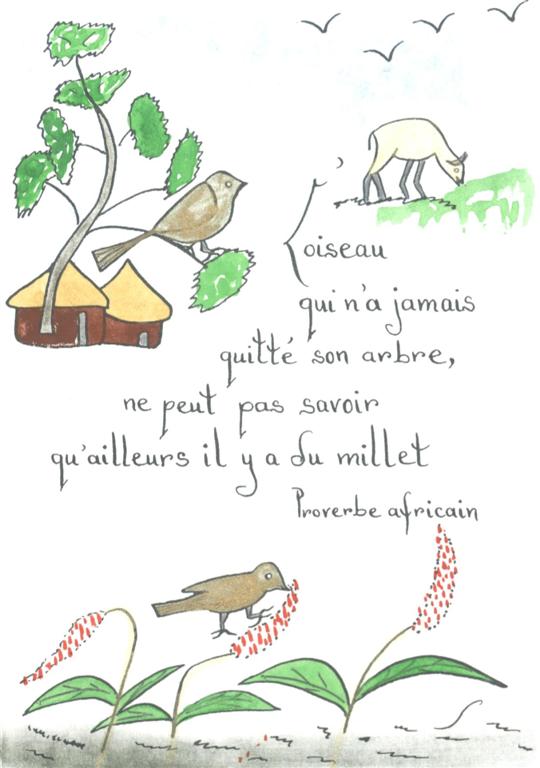 L'oiseau
qui n'a jamais
quitté son arbre,
ne peut pas savoir
qu'ailleurs il y a du millet
Proverbe africain